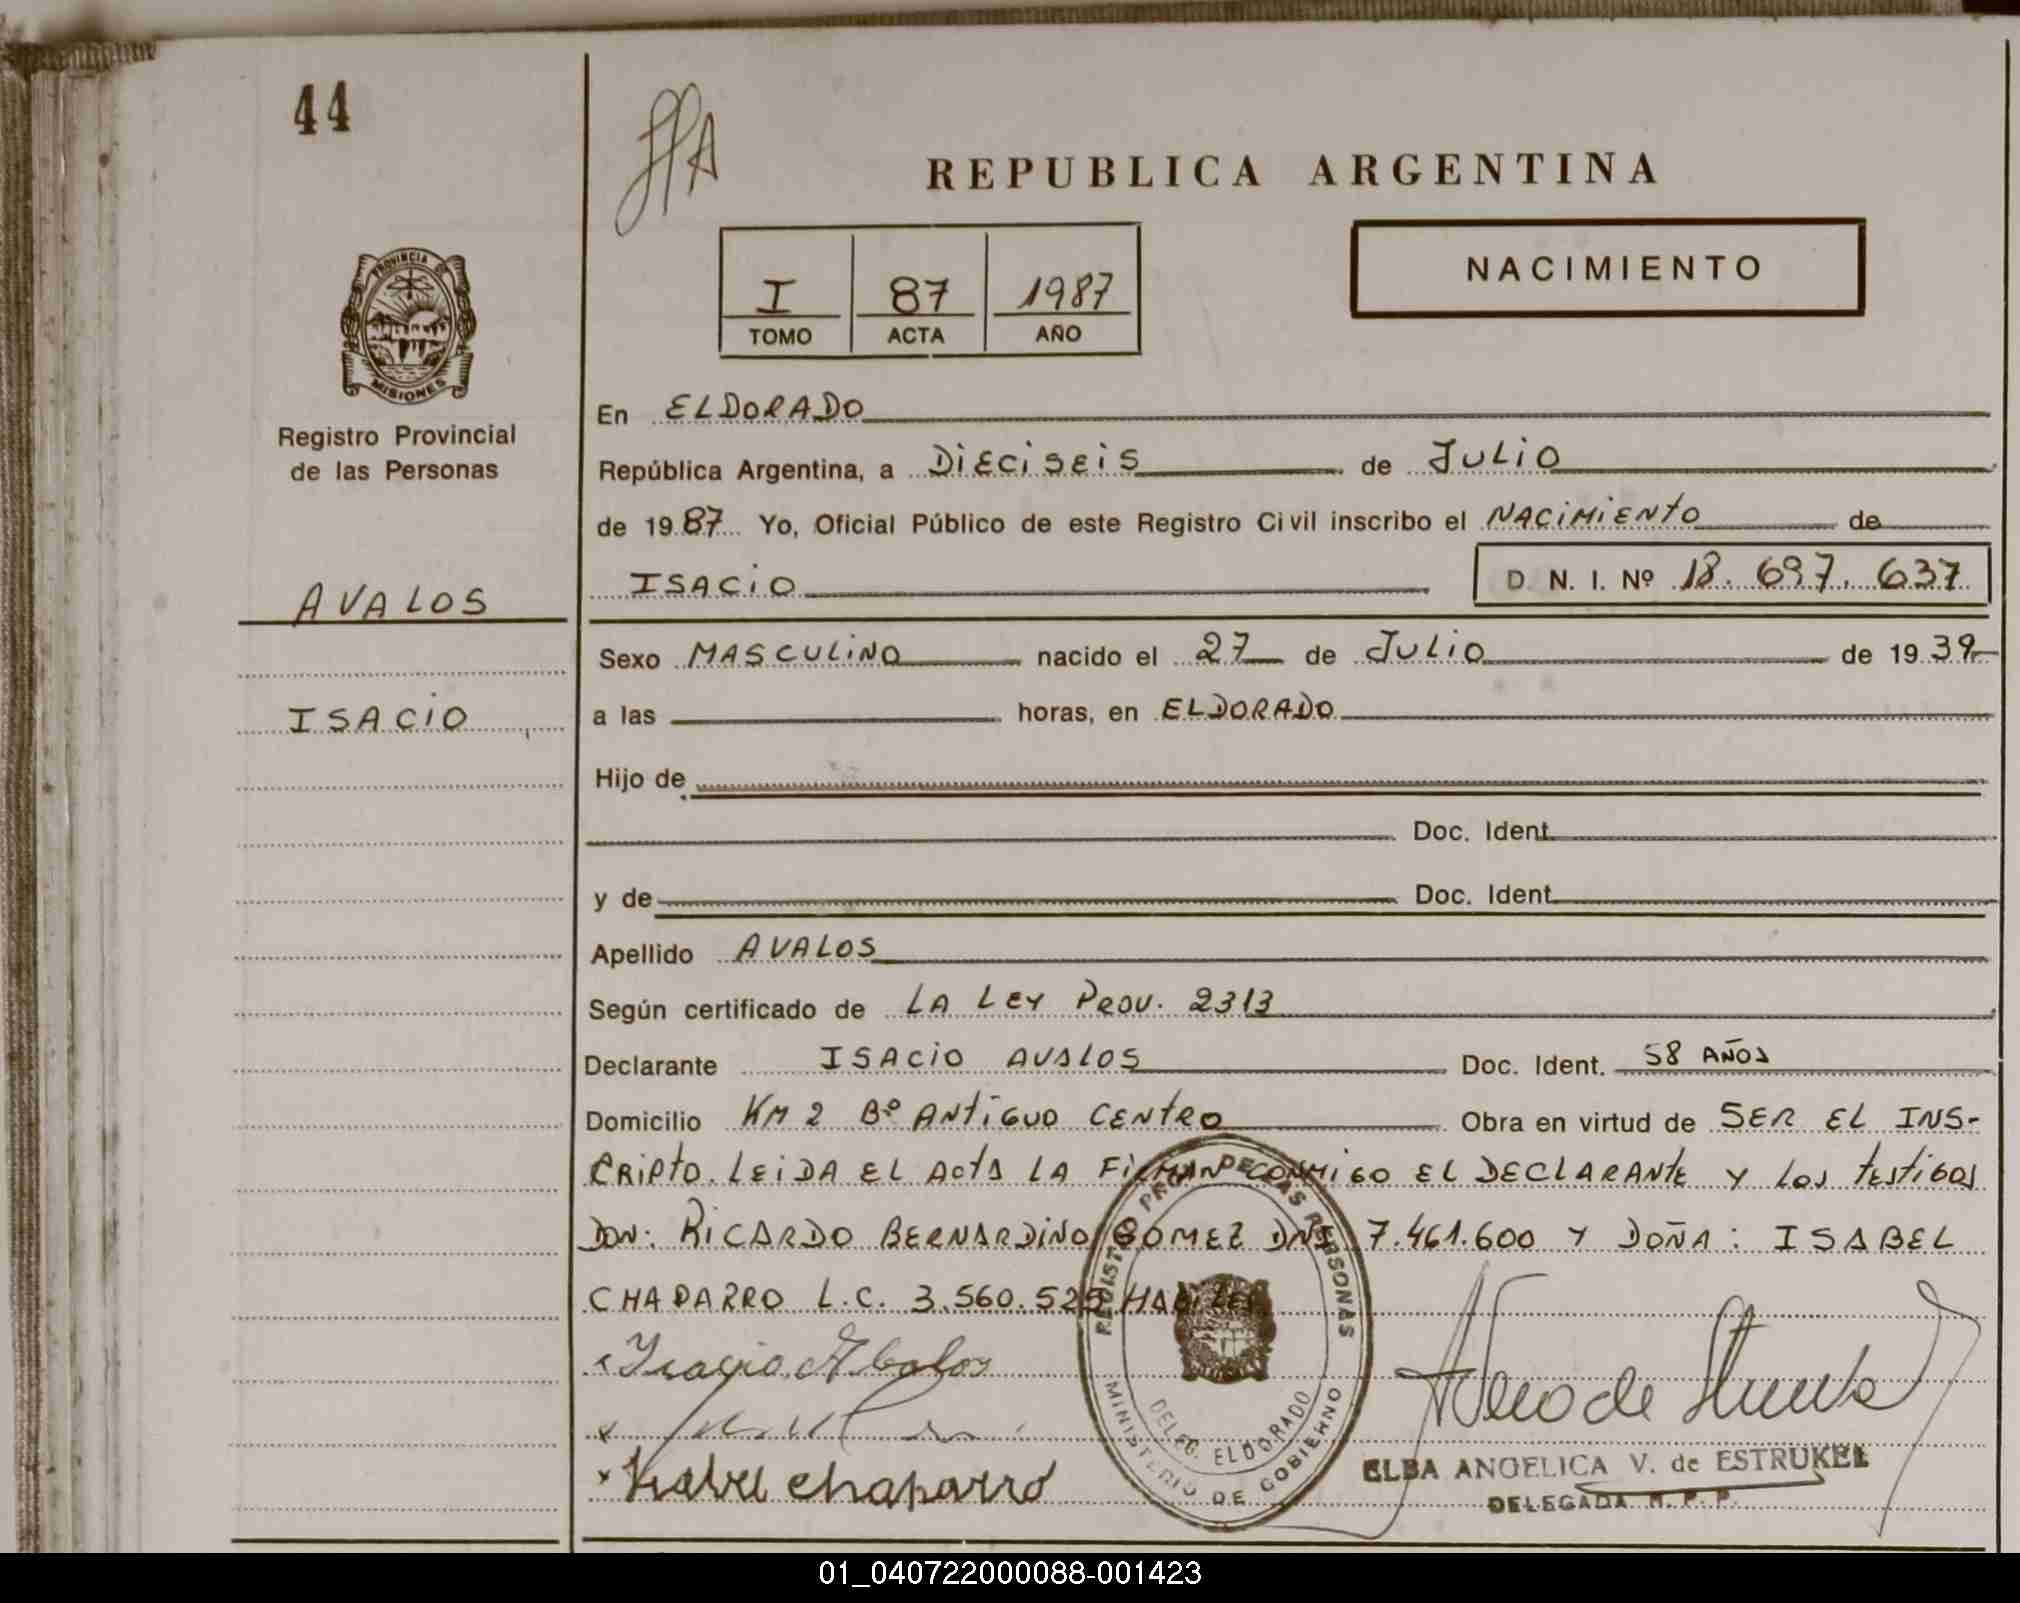 44
REPUBLICA ARGENTINA
NACIMIENTO
I 87 1987
TOMO ACTA AÑO
PROVINCIA DE
MISIONES
Registro Provincial
de las Personas
AVALOS
ISACIO
En ELDORADO
República Argentina, a DIECISEIS de JULIO
de 1987 Yo, Oficial Público de este Registro Civil inscribo el NACIMIENTO de
ISACIO D. N. I. Nº 18.697.637
Sexo MASCULINO nacido el 27 de JULIO de 1939
a las horas, en ELDORADO
Hijo de
Doc. Ident.
y de Doc. Ident.
Apellido AVALOS
Según certificado de LA LEY PROV. 2313
Declarante ISACIO AVALOS Doc. Ident. 58 AÑOS
Domicilio KM 2 Bº ANTIGUO CENTRO Obra en virtud de SER EL INS-
CRIPTO. LEIDA EL ACTA LA FIRMAN CONMIGO EL DECLARANTE Y LOS TESTIGOS
DON: RICARDO BERNARDINO GOMEZ DNI 7.461.600 Y DOÑA: ISABEL
CHAPARRO L.C. 3.560.525 HABILES
Isacio Abalos
Isabel Chaparro
REGISTRO PROV. DE LAS PERSONAS
DELEG. ELDORADO
MINISTERIO DE GOBIERNO
ELBA ANGELICA V. de ESTRUKEL
DELEGADA R. P. P.
01_040722000088-001423